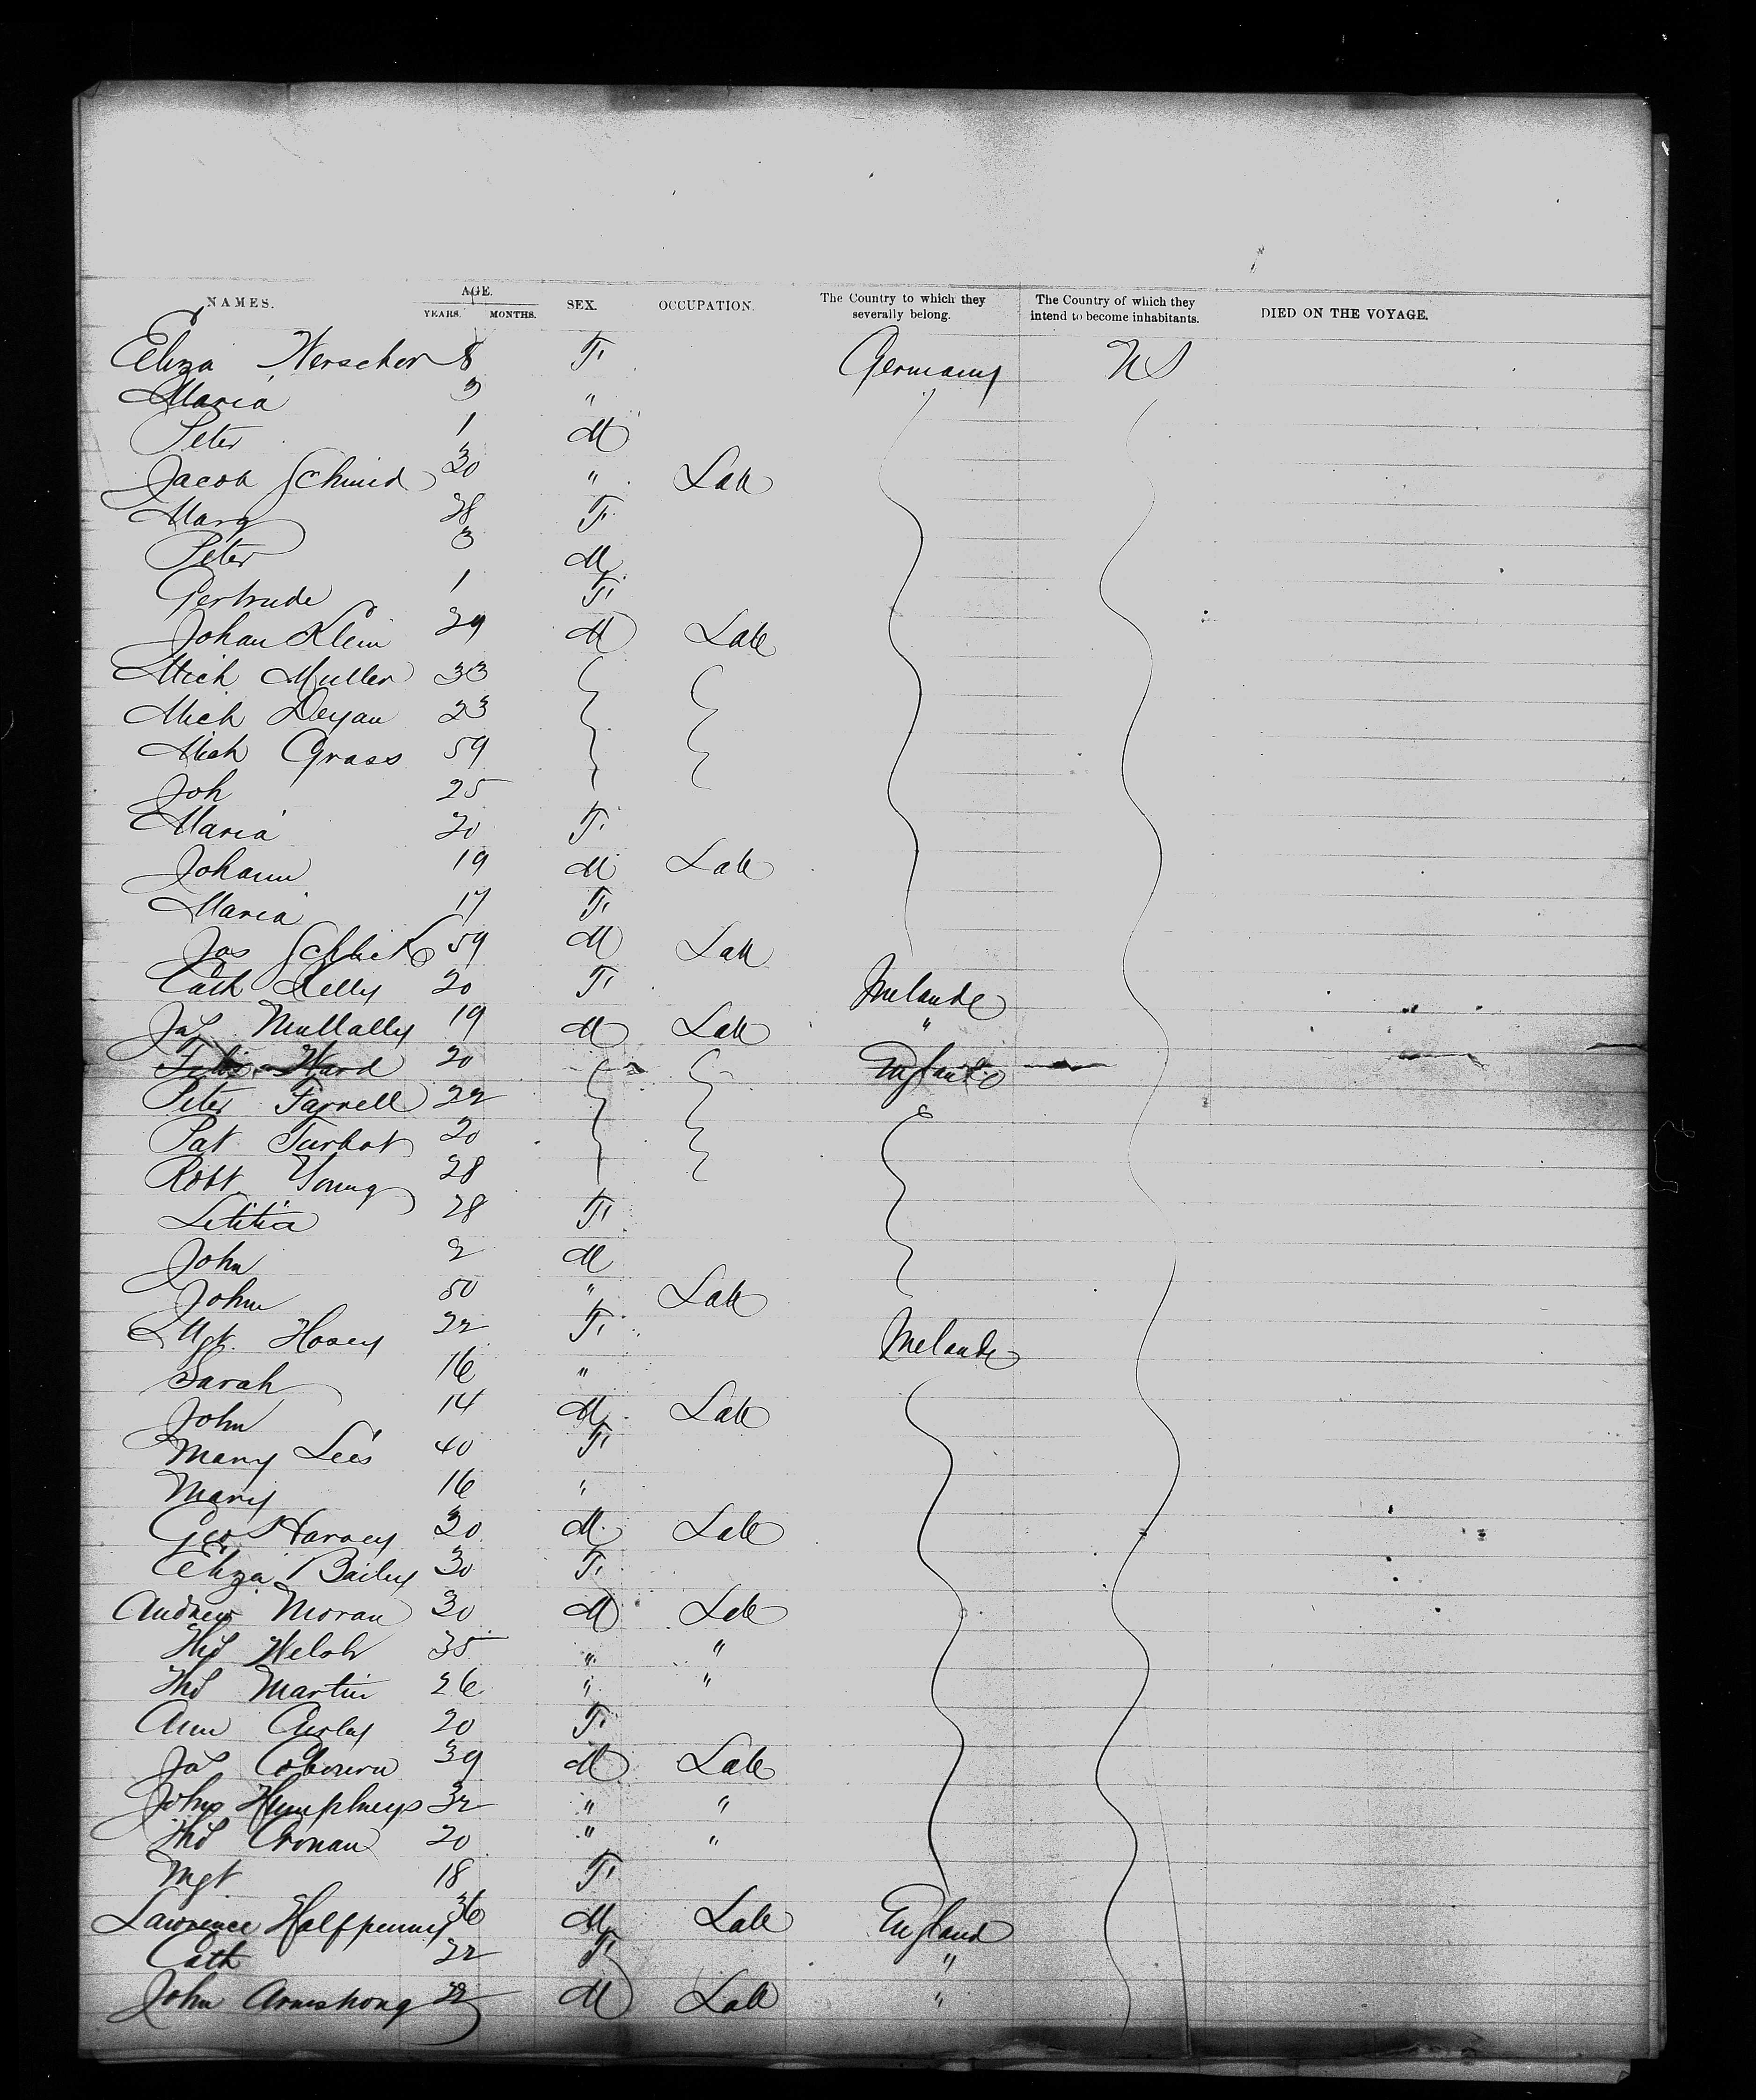 NAMES. AGE. YEARS. MONTHS. SEX. OCCUPATION. The Country to which they severally belong. The Country of which they intend to become inhabitants. DIED ON THE VOYAGE.
Eliza Herscher 8 F. Germany US
Maria 3 "
Peter 1 M
Jacob Schmid 30 " Lab
Marg 28 F.
Peter 3 M
Gertrude 1 F.
Johan Klein 29 M Lab
Mich Muller 33
Mich Deyan 23
Mich Grass 59
Joh 25
Maria 20 F.
Johann 19 M Lab
Maria 17 F.
Jos 59 M Lab
Cath Kelly 20 F. Ireland
Jas Mullally 19 M Lab "
Ward 20 England
Peter Farrell 22
Pat Turbot 20
Robt Young 28
Letitia 28 F.
John 2 M
John 50 " Lab
Mgt. Hosey 22 F. Ireland
Sarah 16 "
John 14 M Lab
Mary Lees 40 F.
Mary 16 "
Geo Harvey 30 M Lab
Eliza Bailey 30 F.
Andrew Moran 30 M Lab
Thos Welsh 35 " "
Thos Martin 26 " "
Ann Curley 20 F.
Jas Cobourn 39 M Lab
John Humphreys 32 " "
Thos Cronan 20 " "
Mgt 18 F.
Lawrence Halfpenny 36 M Lab England
Cath 22 F. "
John Armstrong 22 M Lab "